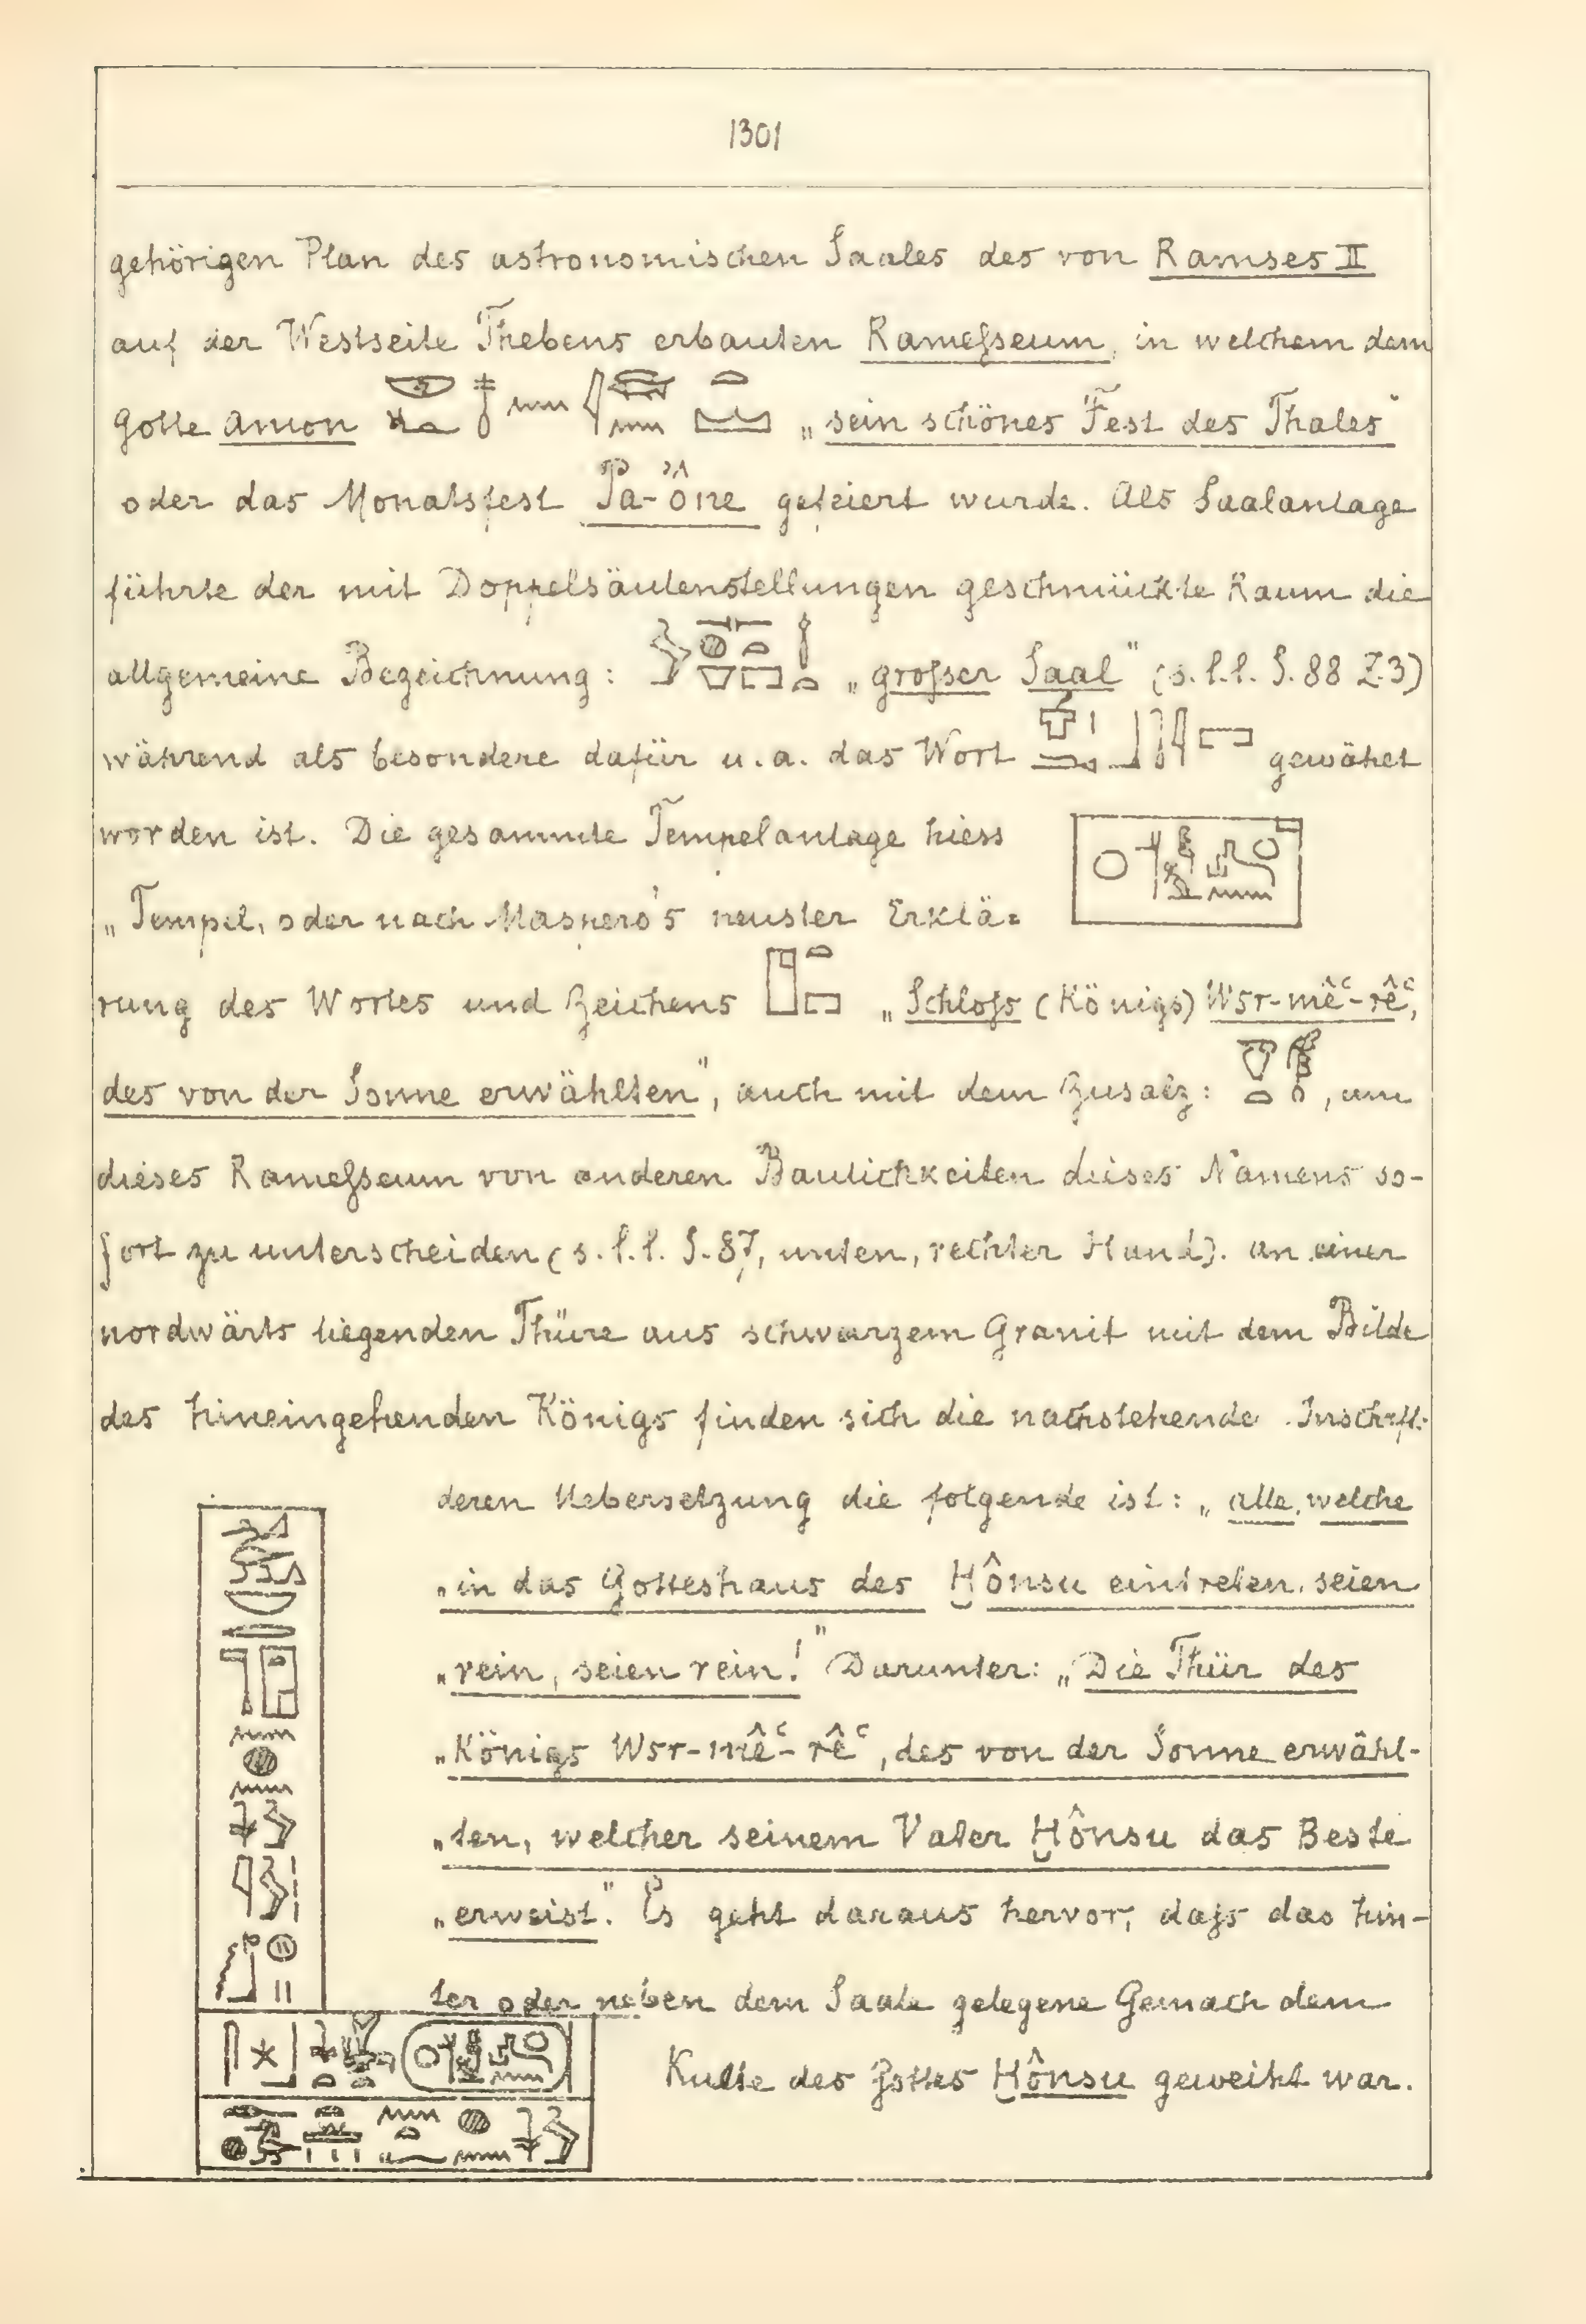 1301
gehörigen Plan des astronomischen Saales des von Ramses II
auf der Westseite Thebens erbauten Rameſseum, in welchem dem
Gotte Amon „sein schönes Fest des Thales"
oder das Monatsfest Pa-ône gefeiert wurde. Als Saalanlage
führte der mit Doppelsäulenstellungen geschmückte Raum die
allgemeine Bezeichnung: „groſser Saal" (s. l.l. S. 88 Z. 3)
während als besondere dafür u. a. das Wort gewählt
worden ist. Die gesammte Tempelanlage hiess
„Tempel, oder nach Maspero's neuster Erklä=
rung des Wortes und Zeichens „Schloſs (Königs) Wsr-mêᶜ-rêᶜ,
des von der Sonne erwählten", auch mit dem Zusatz: , um
dieses Rameſseum von anderen Baulichkeiten dieses Namens so-
fort zu unterscheiden (s. l.l. S. 87, unten, rechter Hand). An einer
nordwärts liegenden Thüre aus schwarzem Granit mit dem Bilde
des hineingehenden Königs finden sich die nachstehende Inschrift:
deren Uebersetzung die folgende ist: „alle, welche
„in das Gotteshaus des H̱ônsu eintreten, seien
„rein, seien rein!" Darunter: „Die Thür des
„Königs Wsr-mêᶜ-rêᶜ, des von der Sonne erwähl-
„ten, welcher seinem Vater H̱ônsu das Beste
„erweist." Es geht daraus hervor, daſs das hin-
ter oder neben dem Saale gelegene Gemach dem
Kulte des Gottes H̱ônsu geweiht war.